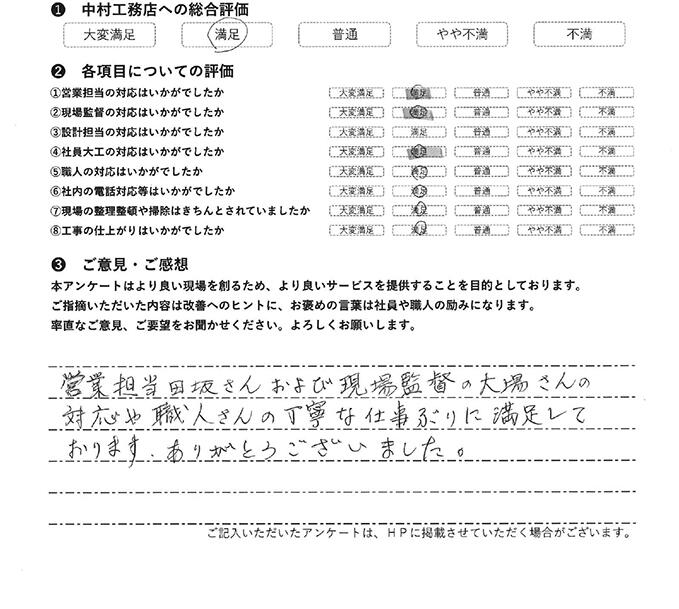 ❶ 中村工務店への総合評価
大変満足 満足 普通 やや不満 不満
❷ 各項目についての評価
①営業担当の対応はいかがでしたか 大変満足 満足 普通 やや不満 不満
②現場監督の対応はいかがでしたか 大変満足 満足 普通 やや不満 不満
③設計担当の対応はいかがでしたか 大変満足 満足 普通 やや不満 不満
④社員大工の対応はいかがでしたか 大変満足 満足 普通 やや不満 不満
⑤職人の対応はいかがでしたか 大変満足 満足 普通 やや不満 不満
⑥社内の電話対応等はいかがでしたか 大変満足 満足 普通 やや不満 不満
⑦現場の整理整頓や掃除はきちんとされていましたか 大変満足 満足 普通 やや不満 不満
⑧工事の仕上がりはいかがでしたか 大変満足 満足 普通 やや不満 不満
❸ ご意見・ご感想
本アンケートはより良い現場を創るため、より良いサービスを提供することを目的としております。
ご指摘いただいた内容は改善へのヒントに、お褒めの言葉は社員や職人の励みになります。
率直なご意見、ご要望をお聞かせください。よろしくお願いします。
営業担当田坂さんおよび現場監督の大場さんの
対応や職人さんの丁寧な仕事ぶりに満足して
おります。ありがとうございました。
ご記入いただいたアンケートは、HPに掲載させていただく場合がございます。